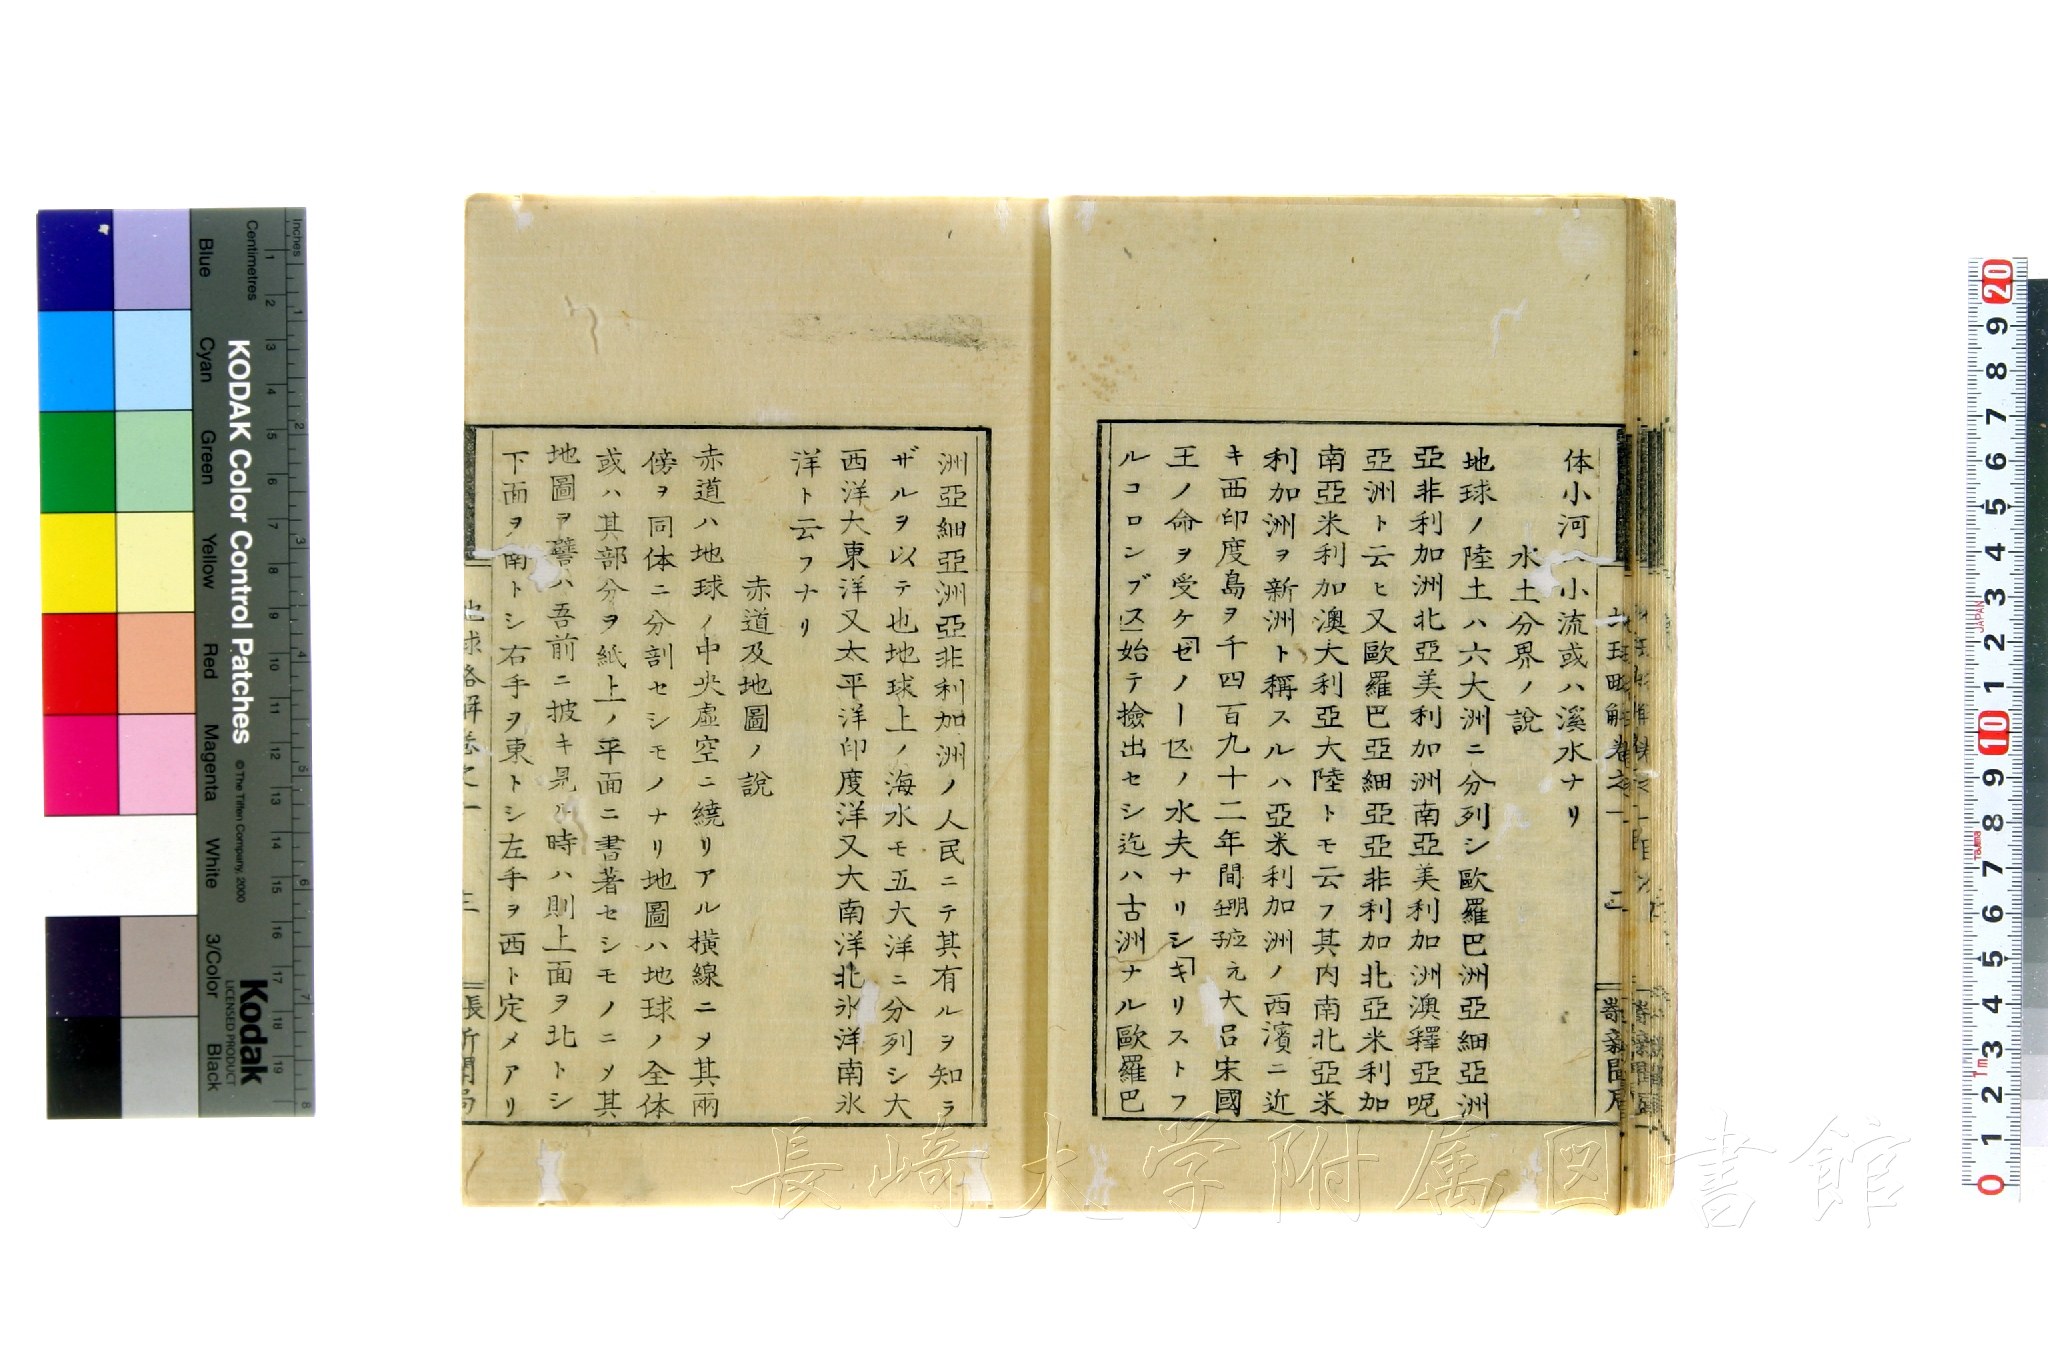 体小河ハ小流或ハ溪水ナリ
水土分界ノ說
地球ノ陸土ハ六大洲ニ分列シ歐羅巴洲亞細亞洲
亞非利加洲北亞美利加洲南亞美利加洲澳釋亞呢
亞洲ト云ヒ又歐羅巴亞細亞亞非利加北亞米利加
南亞米利加澳大利亞大陸トモ云フ其内南北亞米
利加洲ヲ新洲ト稱スルハ亞米利加洲ノ西濱ニ近
キ西印度島ヲ千四百九十二年間 大呂宋國
王ノ命ヲ受ケゼノーバノ水夫ナリシキリストフ
ルコロンブス始テ撿出セシ迄ハ古洲ナル歐羅巴
洲亞細亞洲亞非利加洲ノ人民ニテ其有ルヲ知ラ
ザルヲ以テ也地球上ノ海水モ五大洋ニ分列シ大
西洋大東洋又太平洋印度洋又大南洋北氷洋南氷
洋ト云フナリ
赤道及地圖ノ說
赤道ハ地球ノ中央虛空ニ繞リアル橫線ニメ其兩
傍ヲ同体ニ分割セシモノナリ地圖ハ地球ノ全体
或ハ其部分ヲ紙上ノ平面ニ書著セシモノニメ其
地圖ヲ譬ハ吾前ニ披キ見ル時ハ則上面ヲ北トシ
下面ヲ南トシ右手ヲ東トシ左手ヲ西ト定メアリ
地球略解卷之一
三
長崎大学附属図書館
KODAK Color Control Patches
© The Tiffen Company, 2000
Kodak
LICENSED PRODUCT
Inches
Centimetres
Blue
Cyan
Green
Yellow
Red
Magenta
White
3/Color
Black
1 2 3 4 5 6 7 8 9 10 11 12 13 14 15 16 17 18 19
1 2 3 4 5 6 7 8
20 9 8 7 6 5 4 3 2 1 10 9 8 7 6 5 4 3 2 1 0
JAPAN
Tajima
Tm